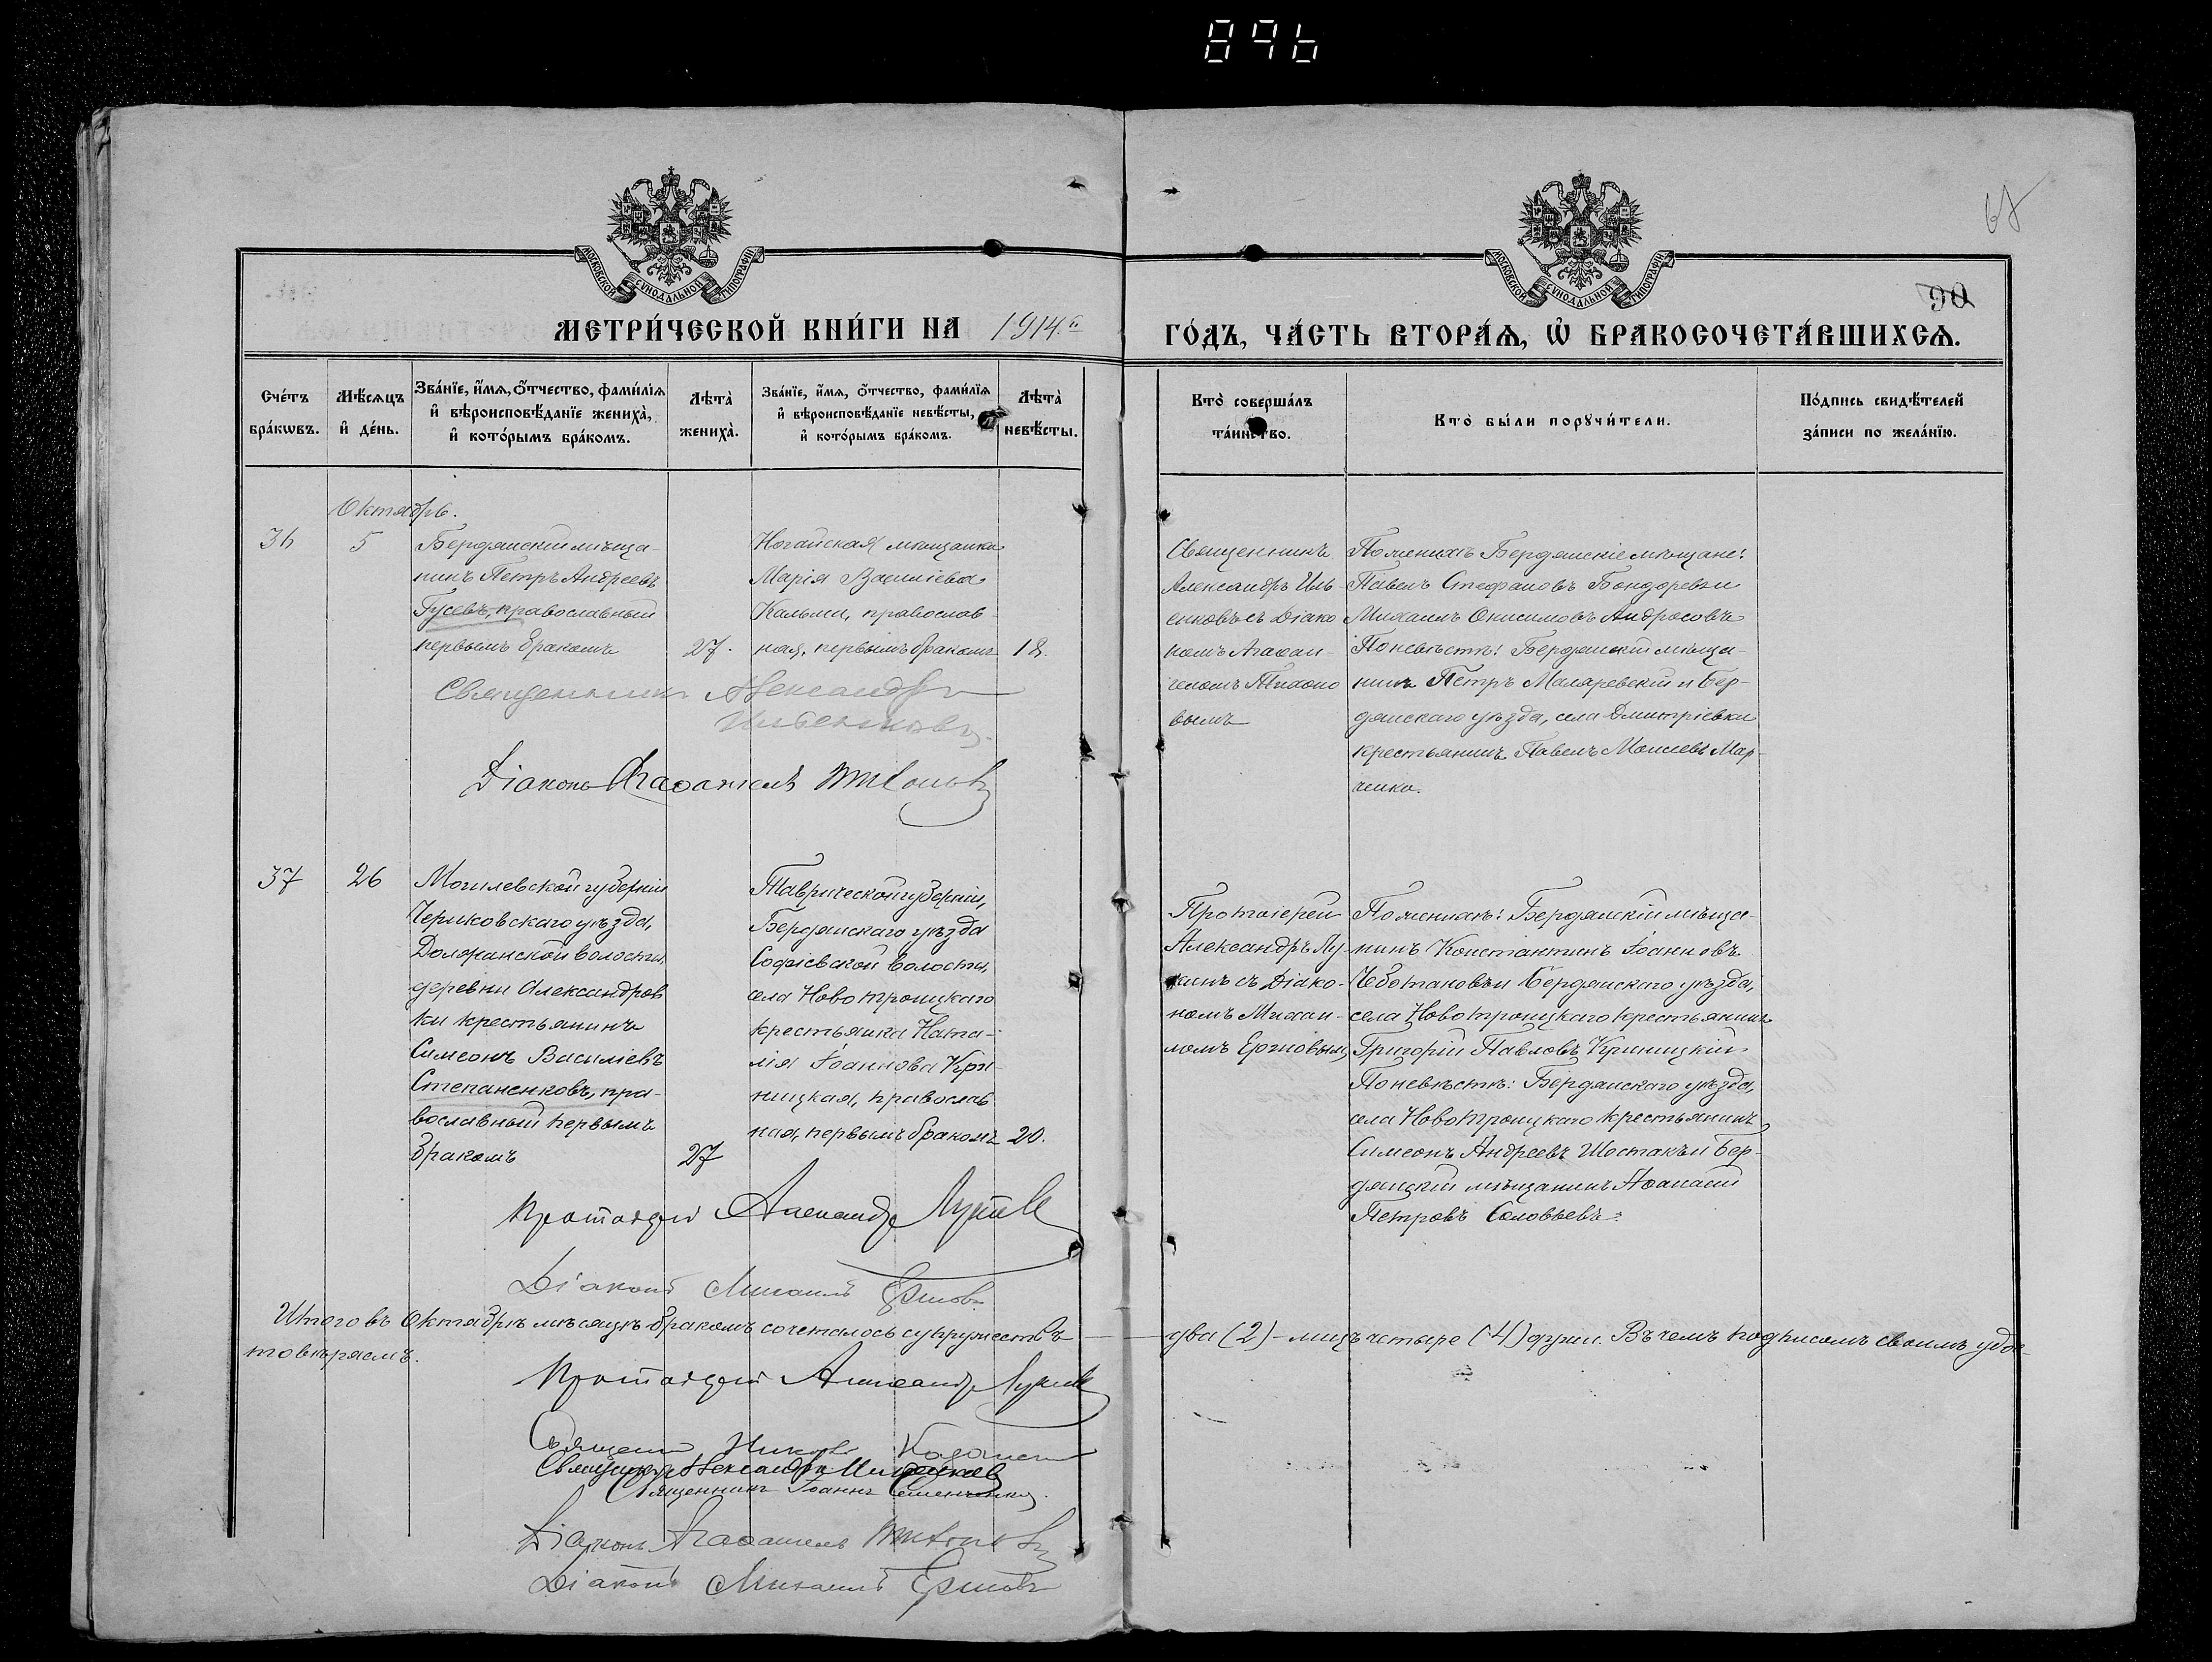 896
МОСКОВСКОЙ СѴНОДАЛЬНОЙ ТИПОГРАФІИ
МОСКОВСКОЙ СѴНОДАЛЬНОЙ ТИПОГРАФІИ
90
МЕТРИ́ЧЕСКОЙ КНИ́ГИ НА 1914 й ГО́ДЪ, ЧА́СТЬ ВТОРА́Я, Ѿ БРАКОСОЧЕТА́ВШИХСЯ.
Сче́тъ бра́кѡвъ.
Мѣ́сяцъ и҆ де́нь.
Зва́нїе, и҆́мя, о҆́тчество, фами́лїя
и҆ вѣроисповѣ́данїе жениха̀,
и҆ кото́рымъ бра́комъ.
Лѣта̀ жениха̀.
Зва́нїе, и҆́мя, о҆́тчество, фами́лїя
и҆ вѣроисповѣ́данїе невѣ́сты,
и҆ кото́рымъ бра́комъ.
Лѣта̀ невѣ́сты.
Кто̀ соверша́лъ
та́инство.
Кто̀ бы́ли порꙋчи́тели.
По́дпись свидѣ́телей
за́писи по жела́нїю.
Октябрь.
36
5
Бердянскій мѣща-
нинъ Петръ Андреевъ
Гусевъ, православный
первымъ бракомъ
27.
Ногайская мѣщанка
Марія Василіева
Кальми, православ-
ная, первымъ бракомъ
18.
Священникъ
Александръ Иль-
енковъ съ Діако
номъ Агаѳан-
геломъ Тихоно
вымъ
По женихѣ Бердянскіе мѣщане:
Павелъ Стефановъ Бондаревъ и
Михаилъ Онисимовъ Андросовъ
По невѣстѣ: Бердянскій мѣща-
нинъ Петръ Маляревскій и Бер-
дянскаго уѣзда, села Дмитріевки
крестьянинъ Павелъ Моисеевъ Мар-
ченко.
Священникъ Александръ
Ильенковъ.
Діаконъ Агаѳангелъ Тихоновъ
37
26
Могилевской губерніи
Чериковскаго уѣзда,
Должанской волости,
деревни Александров
ки крестьянинъ
Симеонъ Василіевъ
Степаненковъ, пра-
вославный первымъ
бракомъ
27
Таврической губерніи,
Бердянскаго уѣзда
Софіевской волости,
села Новотроицкаго
крестьянка Ната-
лія Іоаннова Кри-
ницкая, православ
ная, первымъ бракомъ
20.
Протоіерей
Александръ Лу-
кинъ съ Діако-
номъ Михаи-
ломъ Ершовымъ
По женихѣ: Бердянскій мѣща-
нинъ Константинъ Іоанновъ
Чеботаковъ и Бердянскаго уѣзда,
села Новотроицкаго крестьянинъ
Григорій Павловъ Криницкій
По невѣстѣ: Бердянскаго уѣзда,
села Новотроицкаго крестьянинъ
Симеонъ Андреевъ Шостакъ и Бер-
дянскій мѣщанинъ Аѳанасій
Петровъ Соловьевъ.
Протоіерей Александръ Лукинъ
Діаконъ Михаилъ Ершовъ
Итого въ Октябрѣ мѣсяцѣ бракомъ сочеталось супружествъ два (2) - лицъ четыре (4) души. Въ чемъ подписомъ своимъ удос-
товѣряемъ.
Протоіерей Александръ Лукинъ
Священникъ
Священникъ Александръ Ильенковъ
Священникъ Іоаннъ
Діаконъ Агаѳангелъ Тихоновъ
Діаконъ Михаилъ Ершовъ